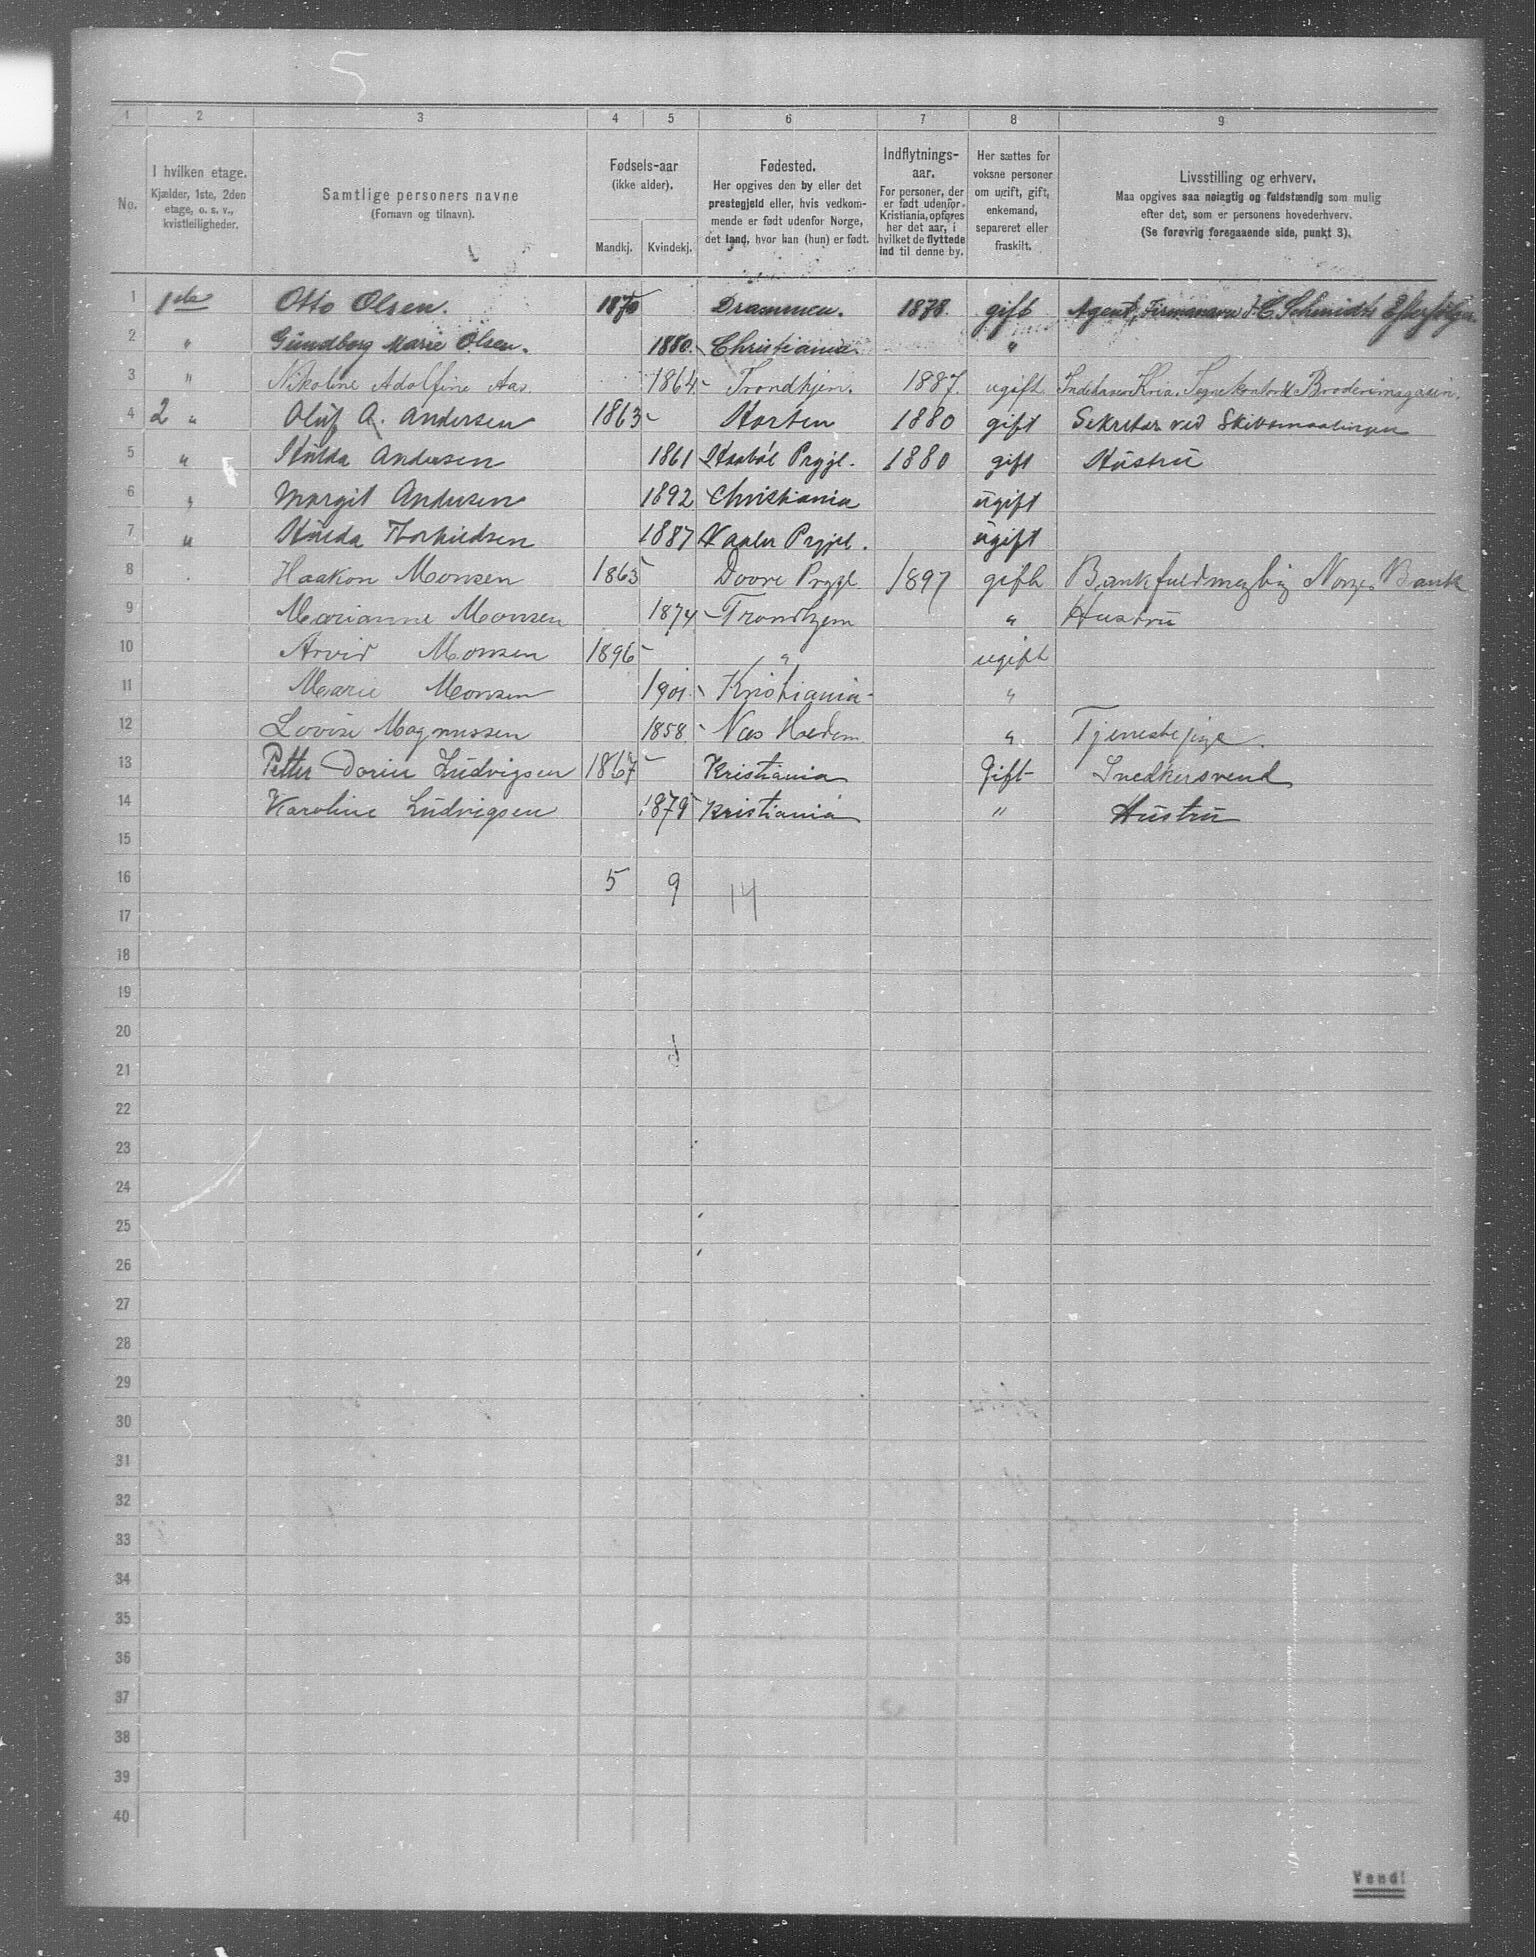 5
1 2 3 4 5 6 7 8 9
No.
I hvilken etage.
Kjælder, 1ste, 2den
etage, o. s. v.,
kvistleiligheder.
Samtlige personers navne
(Fornavn og tilnavn).
Fødsels-aar
(ikke alder).
Mandkj. Kvindekj.
Fødested.
Her opgives den by eller det
prestegjeld eller, hvis vedkom-
mende er født udenfor Norge,
det land, hvor han (hun) er født.
Indflytnings-
aar.
For personer, der
er født udenfor
Kristiania, opføres
her det aar, i
hvilket de flyttede
ind til denne by.
Her sættes for
voksne personer
om ugift, gift,
enkemand,
separeret eller
fraskilt.
Livsstilling og erhverv.
Maa opgives saa nøiagtig og fuldstændig som mulig
efter det, som er personens hovederhverv.
(Se forøvrig foregaaende side, punkt 3).
1 1ste Otto Olsen. 1870 Drammen. 1878. gift Agent, Firmanavn J. C. Schmidts Efterfølger
2 " Gundborg Marie Olsen. 1880. Christiania. "
3 " Nikoline Adolfine Aas. 1864 Trondhjem. 1887. ugift. Indehaver Kria. Tegnekontor & Broderimagasin.
4 2 " Oluf A. Andersen 1863 Horten 1880 gift Sekretær ved Skibsmaalingen
5 " Hulda Andersen 1861 Haabøl Prgjl. 1880 gift Hustru
6 " Margit Andersen 1892 Christiania ugift
7 " Hulda Thorkildsen 1887 Vaaler Prgjel. ugift
8 Haakon Monsen 1865 Dovre Prgjl 1897 gift Bankfuldmægtig Norges Bank
9 Marianne Monsen 1874 Trondhjem " Hustru
10 Arvid Monsen 1896 " ugift
11 Marie Monsen 1901 Kristiania "
12 Lovise Magnussen 1858 Næs Hedem. " Tjenestepige.
13 Petter Dorius Ludvigsen 1867 Kristiania Gift Snedkersvend
14 Karoline Ludvigsen 1879 Kristiania " Hustru
15
16 5 9 14
17
18
19
20
21
22
23
24
25
26
27
28
29
30
31
32
33
34
35
36
37
38
39
40
Vend!